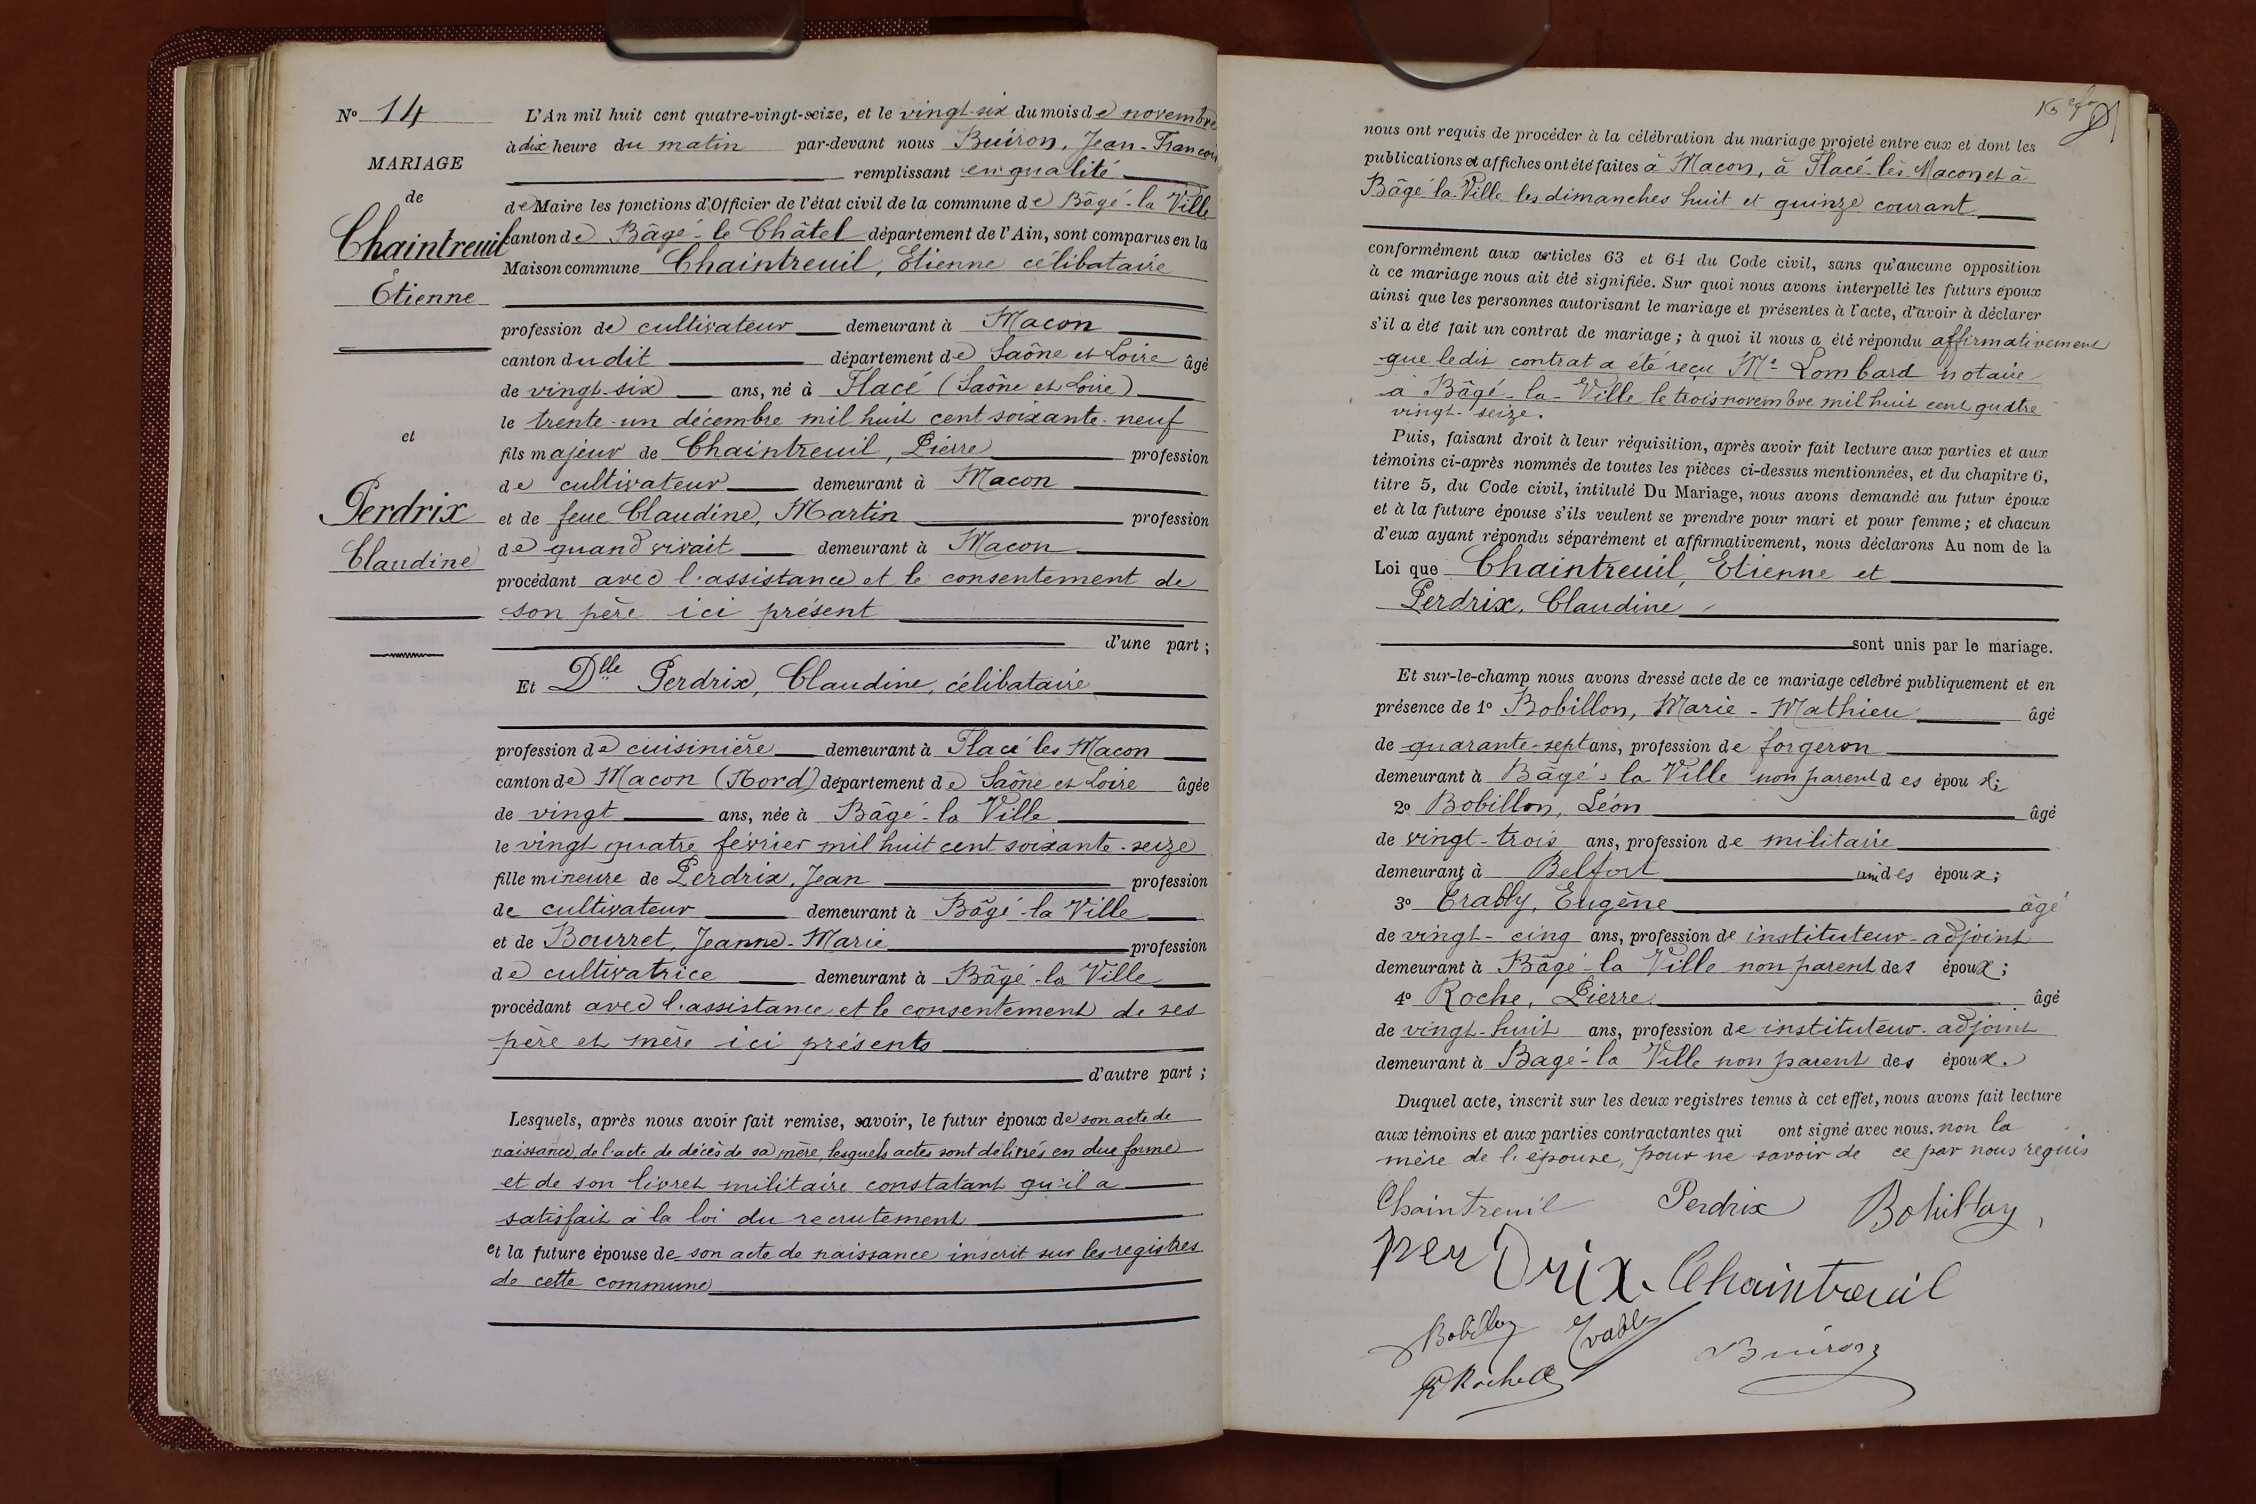 N° 14
MARIAGE
de
Chaintreuil
Etienne
et
Perdrix
Claudine
L'An mil huit cent quatre-vingt-seize, et le vingt-six du mois de novembre
à dix heure du matin par-devant nous Buiron, Jean-François
remplissant en qualité
de Maire les fonctions d'Officier de l'état civil de la commune de Bâgé-la Ville
canton de Bâgé-le Châtel département de l'Ain, sont comparus en la
Maison commune Chaintreuil, Etienne célibataire
profession de cultivateur demeurant à Macon
canton dudit département de Saône et Loire âgé
de vingt-six ans, né à Flacé (Saône et Loire)
le trente-un décembre mil huit cent soixante-neuf
fils majeur de Chaintreuil, Pierre profession
de cultivateur demeurant à Macon
et de feue Claudine, Martin profession
de quand vivait demeurant à Macon
procédant avec l'assistance et le consentement de
son père ici présent
d'une part ;
Et Dlle Perdrix, Claudine, célibataire
profession de cuisinière demeurant à Flacé les Macon
canton de Macon (Nord) département de Saône et Loire âgée
de vingt ans, née à Bâgé-la Ville
le vingt quatre février mil huit cent soixante-seize
fille mineure de Perdrix, Jean profession
de cultivateur demeurant à Bâgé-la Ville
et de Bourret, Jeanne-Marie profession
de cultivatrice demeurant à Bâgé-la Ville
procédant avec l'assistance et le consentement de ses
père et mère ici présents
d'autre part ;
Lesquels, après nous avoir fait remise, savoir, le futur époux de son acte de
naissance, de l'acte de décès de sa mère, lesquels actes sont délivrés en due forme
et de son livret militaire constatant qu'il a
satisfait à la loi du recrutement
et la future épouse de son acte de naissance inscrit sur les registres
de cette commune
nous ont requis de procéder à la célébration du mariage projeté entre eux et dont les
publications et affiches ont été faites à Macon, à Flacé-les Macon et à
Bâgé-la-Ville les dimanches huit et quinze courant
conformément aux articles 63 et 64 du Code civil, sans qu'aucune opposition
à ce mariage nous ait été signifiée. Sur quoi nous avons interpellé les futurs époux
ainsi que les personnes autorisant le mariage et présentes à l'acte, d'avoir à déclarer
s'il a été fait un contrat de mariage ; à quoi il nous a été répondu affirmativement
que ledit contrat a été reçu Me Lombard notaire
à Bâgé-la-Ville le trois novembre mil huit cent quatre
vingt-seize.
Puis, faisant droit à leur réquisition, après avoir fait lecture aux parties et aux
témoins ci-après nommés de toutes les pièces ci-dessus mentionnées, et du chapitre 6,
titre 5, du Code civil, intitulé Du Mariage, nous avons demandé au futur époux
et à la future épouse s'ils veulent se prendre pour mari et pour femme ; et chacun
d'eux ayant répondu séparément et affirmativement, nous déclarons Au nom de la
Loi que Chaintreuil, Etienne et
Perdrix, Claudine
sont unis par le mariage.
Et sur-le-champ nous avons dressé acte de ce mariage célébré publiquement et en
présence de 1° Bobillon, Marie-Mathieu âgé
de quarante-sept ans, profession de forgeron
demeurant à Bâgé-la Ville non parent des époux ;
2° Bobillon, Léon âgé
de vingt-trois ans, profession de militaire
demeurant à Belfort ami des époux ;
3° Trably, Eugène âgé
de vingt-cinq ans, profession de instituteur-adjoint
demeurant à Bâgé-la Ville non parent des époux ;
4° Roche, Pierre âgé
de vingt-huit ans, profession de instituteur-adjoint
demeurant à Bagé-la Ville non parent des époux.
Duquel acte, inscrit sur les deux registres tenus à cet effet, nous avons fait lecture
aux témoins et aux parties contractantes qui ont signé avec nous. non la
mère de l'épouse, pour ne savoir de ce par nous requis
Chaintreuil Perdrix Bobillon
perDrix Chaintreuil
Bobillon Trably
P Roche Buiron